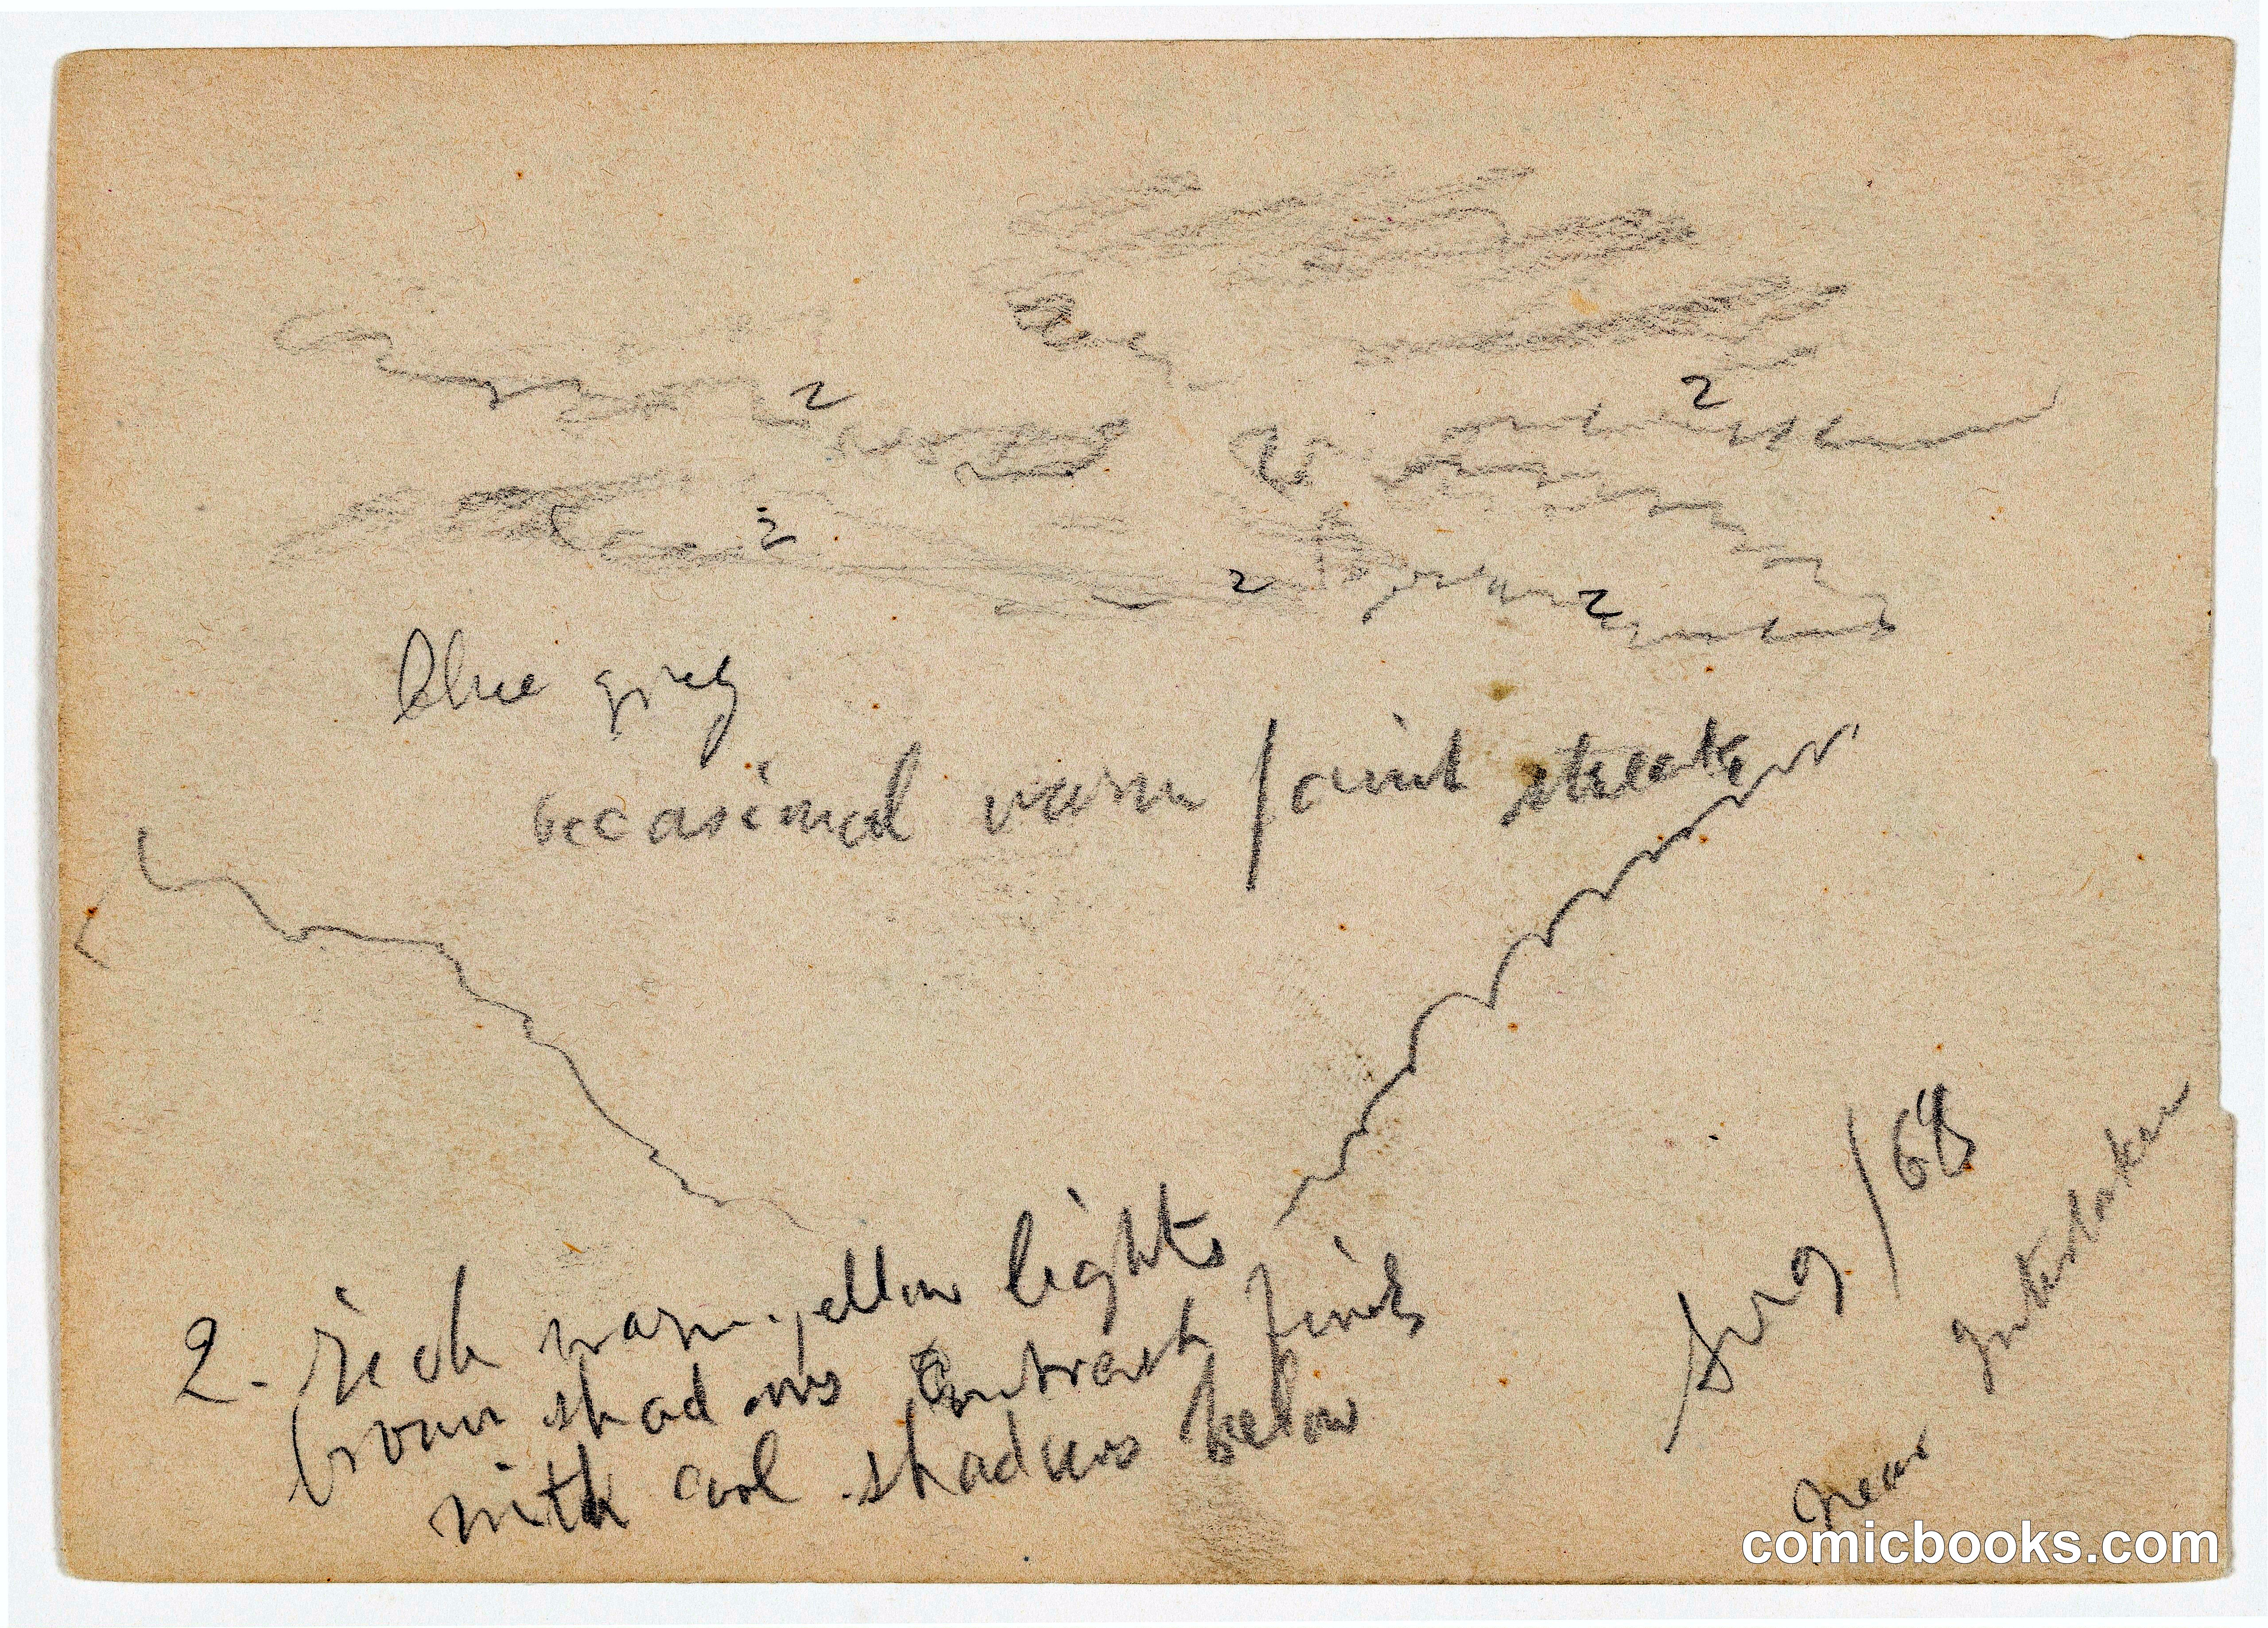 2
2
2
2
2
blue grey
occasional warm / faint streaks
2. rich warm yellow lights
brown shadows contrast finds
with cool shadows below
Aug / 68
near